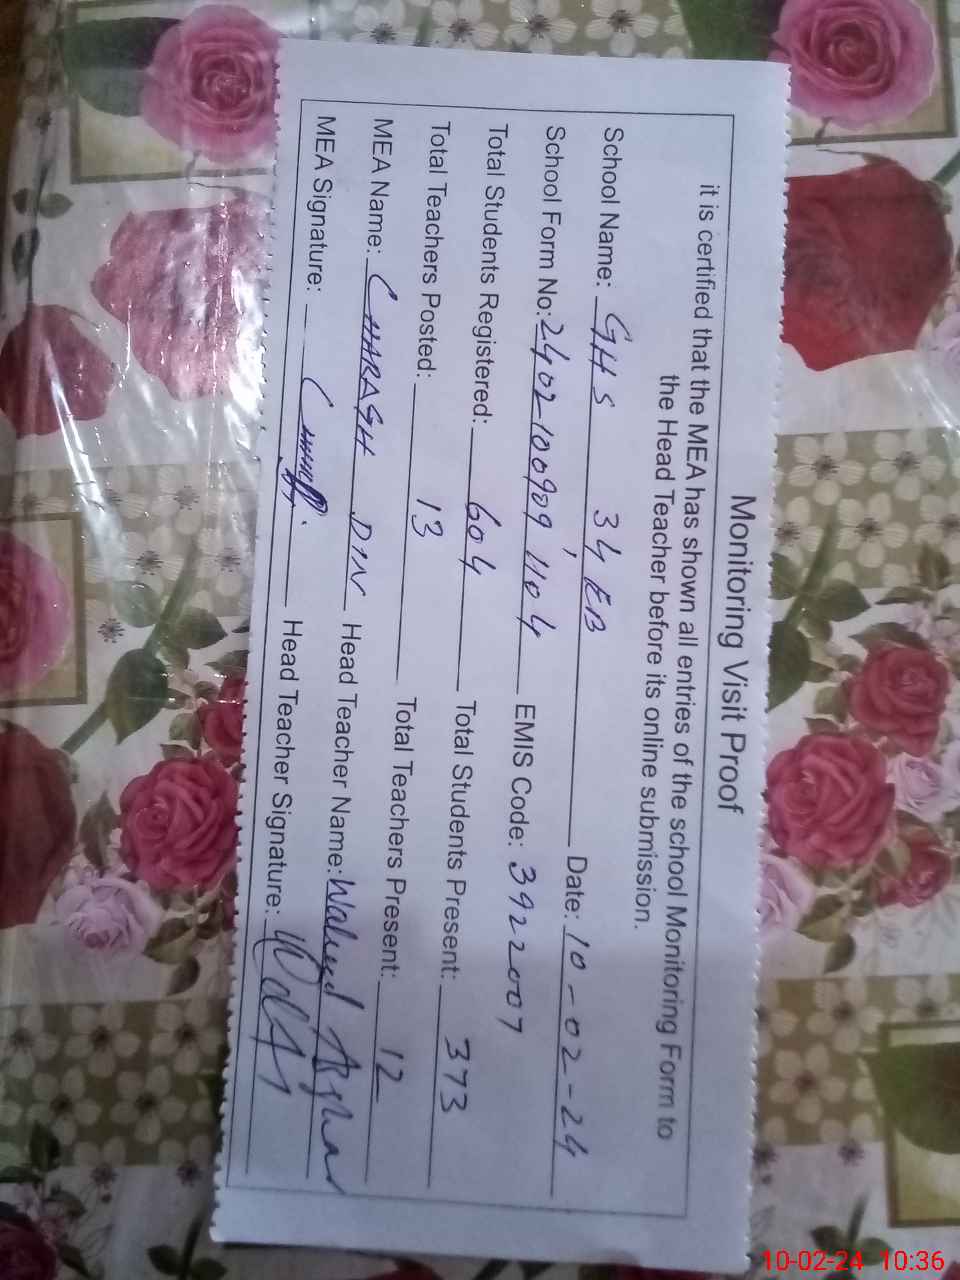 Monitoring Visit Proof
it is certified that the MEA has shown all entries of the school Monitoring Form to
the Head Teacher before its online submission.
School Name: GHS 34 EB Date: 10-02-24
School Form No: 2402100909 1104 EMIS Code: 3922007
Total Students Registered: 604 Total Students Present: 373
Total Teachers Posted: 13 Total Teachers Present: 12
MEA Name: CHARAGH DIN Head Teacher Name: Waheed Asghar
MEA Signature: Head Teacher Signature:
10-02-24 10:36